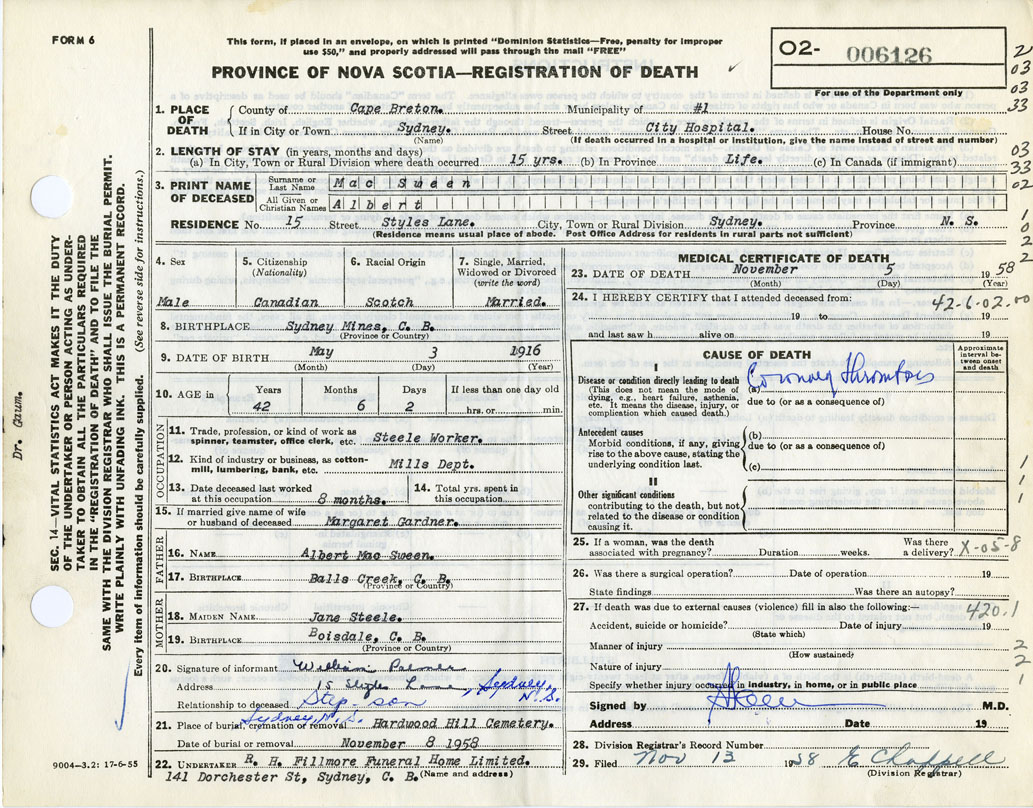 FORM 6
This form, if placed in an envelope, on which is printed "Dominion Statistics—Free, penalty for improper
use $50," and properly addressed will pass through the mail "FREE"
PROVINCE OF NOVA SCOTIA—REGISTRATION OF DEATH
O2- 006126
For use of the Department only
2
03
03
33
03
33
02
1
0
2
2
1. PLACE OF DEATH
County of Cape Breton. Municipality of #1
If in City or Town Sydney. Street City Hospital. House No.
(Name) (If death occurred in a hospital or institution, give the name instead of street and number)
2. LENGTH OF STAY (in years, months and days)
(a) In City, Town or Rural Division where death occurred 15 yrs. (b) In Province Life. (c) In Canada (if immigrant)
3. PRINT NAME OF DECEASED
Surname or Last Name Mac Sween
All Given or Christian Names Albert
RESIDENCE No. 15 Street Styles Lane. City, Town or Rural Division Sydney. Province N. S.
(Residence means usual place of abode. Post Office Address for residents in rural parts not sufficient)
4. Sex
Male
5. Citizenship
(Nationality)
Canadian
6. Racial Origin
Scotch
7. Single, Married,
Widowed or Divorced
(write the word)
Married.
8. BIRTHPLACE Sydney Mines, C. B.
(Province or Country)
9. DATE OF BIRTH May 3 1916
(Month) (Day) (Year)
10. AGE in
Years Months Days If less than one day old
42 6 2 hrs. or min.
OCCUPATION
11. Trade, profession, or kind of work as
spinner, teamster, office clerk, etc. Steele Worker.
12. Kind of industry or business, as cotton-
mill, lumbering, bank, etc. Mills Dept.
13. Date deceased last worked
at this occupation 8 months.
14. Total yrs. spent in
this occupation
15. If married give name of wife
or husband of deceased Margaret Gardner.
FATHER
16. NAME Albert Mac Sween.
17. BIRTHPLACE Balls Creek, C. B.
(Province or Country)
MOTHER
18. MAIDEN NAME Jane Steele.
19. BIRTHPLACE Boisdale, C. B.
(Province or Country)
20. Signature of informant William Palmer
Address 15 Styles Lane, Sydney, N.S.
Relationship to deceased Step-son
Sydney, N.S.
21. Place of burial, cremation or removal Hardwood Hill Cemetery.
Date of burial or removal November 8 1958
22. UNDERTAKER R. H. Fillmore Funeral Home Limited.
141 Dorchester St, Sydney, C. B. (Name and address)
MEDICAL CERTIFICATE OF DEATH
23. DATE OF DEATH November 5 1958
(Month) (Day) (Year)
24. I HEREBY CERTIFY that I attended deceased from:
42-6-02.00
19 to 19
and last saw h alive on 19
CAUSE OF DEATH
Approximate
interval be-
tween onset
and death
I
Disease or condition directly leading to death
(This does not mean the mode of
dying, e.g., heart failure, asthenia,
etc. It means the disease, injury, or
complication which caused death.)
(a) Coronary Thrombosis
due to (or as a consequence of)
Antecedent causes
Morbid conditions, if any, giving
rise to the above cause, stating the
underlying condition last.
(b)
due to (or as a consequence of)
(c)
II
Other significant conditions
contributing to the death, but not
related to the disease or condition
causing it.
1
1
1
25. If a woman, was the death
associated with pregnancy? Duration weeks.
Was there
a delivery? X-05-8
26. Was there a surgical operation? Date of operation 19
State findings Was there an autopsy?
27. If death was due to external causes (violence) fill in also the following:—
420.1
Accident, suicide or homicide? Date of injury 19
(State which)
Manner of injury
(How sustained)
Nature of injury
2
2
1
Specify whether injury occurred in industry, in home, or in public place
Signed by M.D.
Address Date 19
28. Division Registrar's Record Number
29. Filed Nov 13 1958 E Chappell
(Division Registrar)
9004-3.2: 17-6-55
Dr. Gaum.
SEC. 14—VITAL STATISTICS ACT MAKES IT THE DUTY
OF THE UNDERTAKER OR PERSON ACTING AS UNDER-
TAKER TO OBTAIN ALL THE PARTICULARS REQUIRED
IN THE "REGISTRATION OF DEATH" AND TO FILE THE
SAME WITH THE DIVISION REGISTRAR WHO SHALL ISSUE THE BURIAL PERMIT.
WRITE PLAINLY WITH UNFADING INK. THIS IS A PERMANENT RECORD.
Every item of information should be carefully supplied. (See reverse side for instructions.)